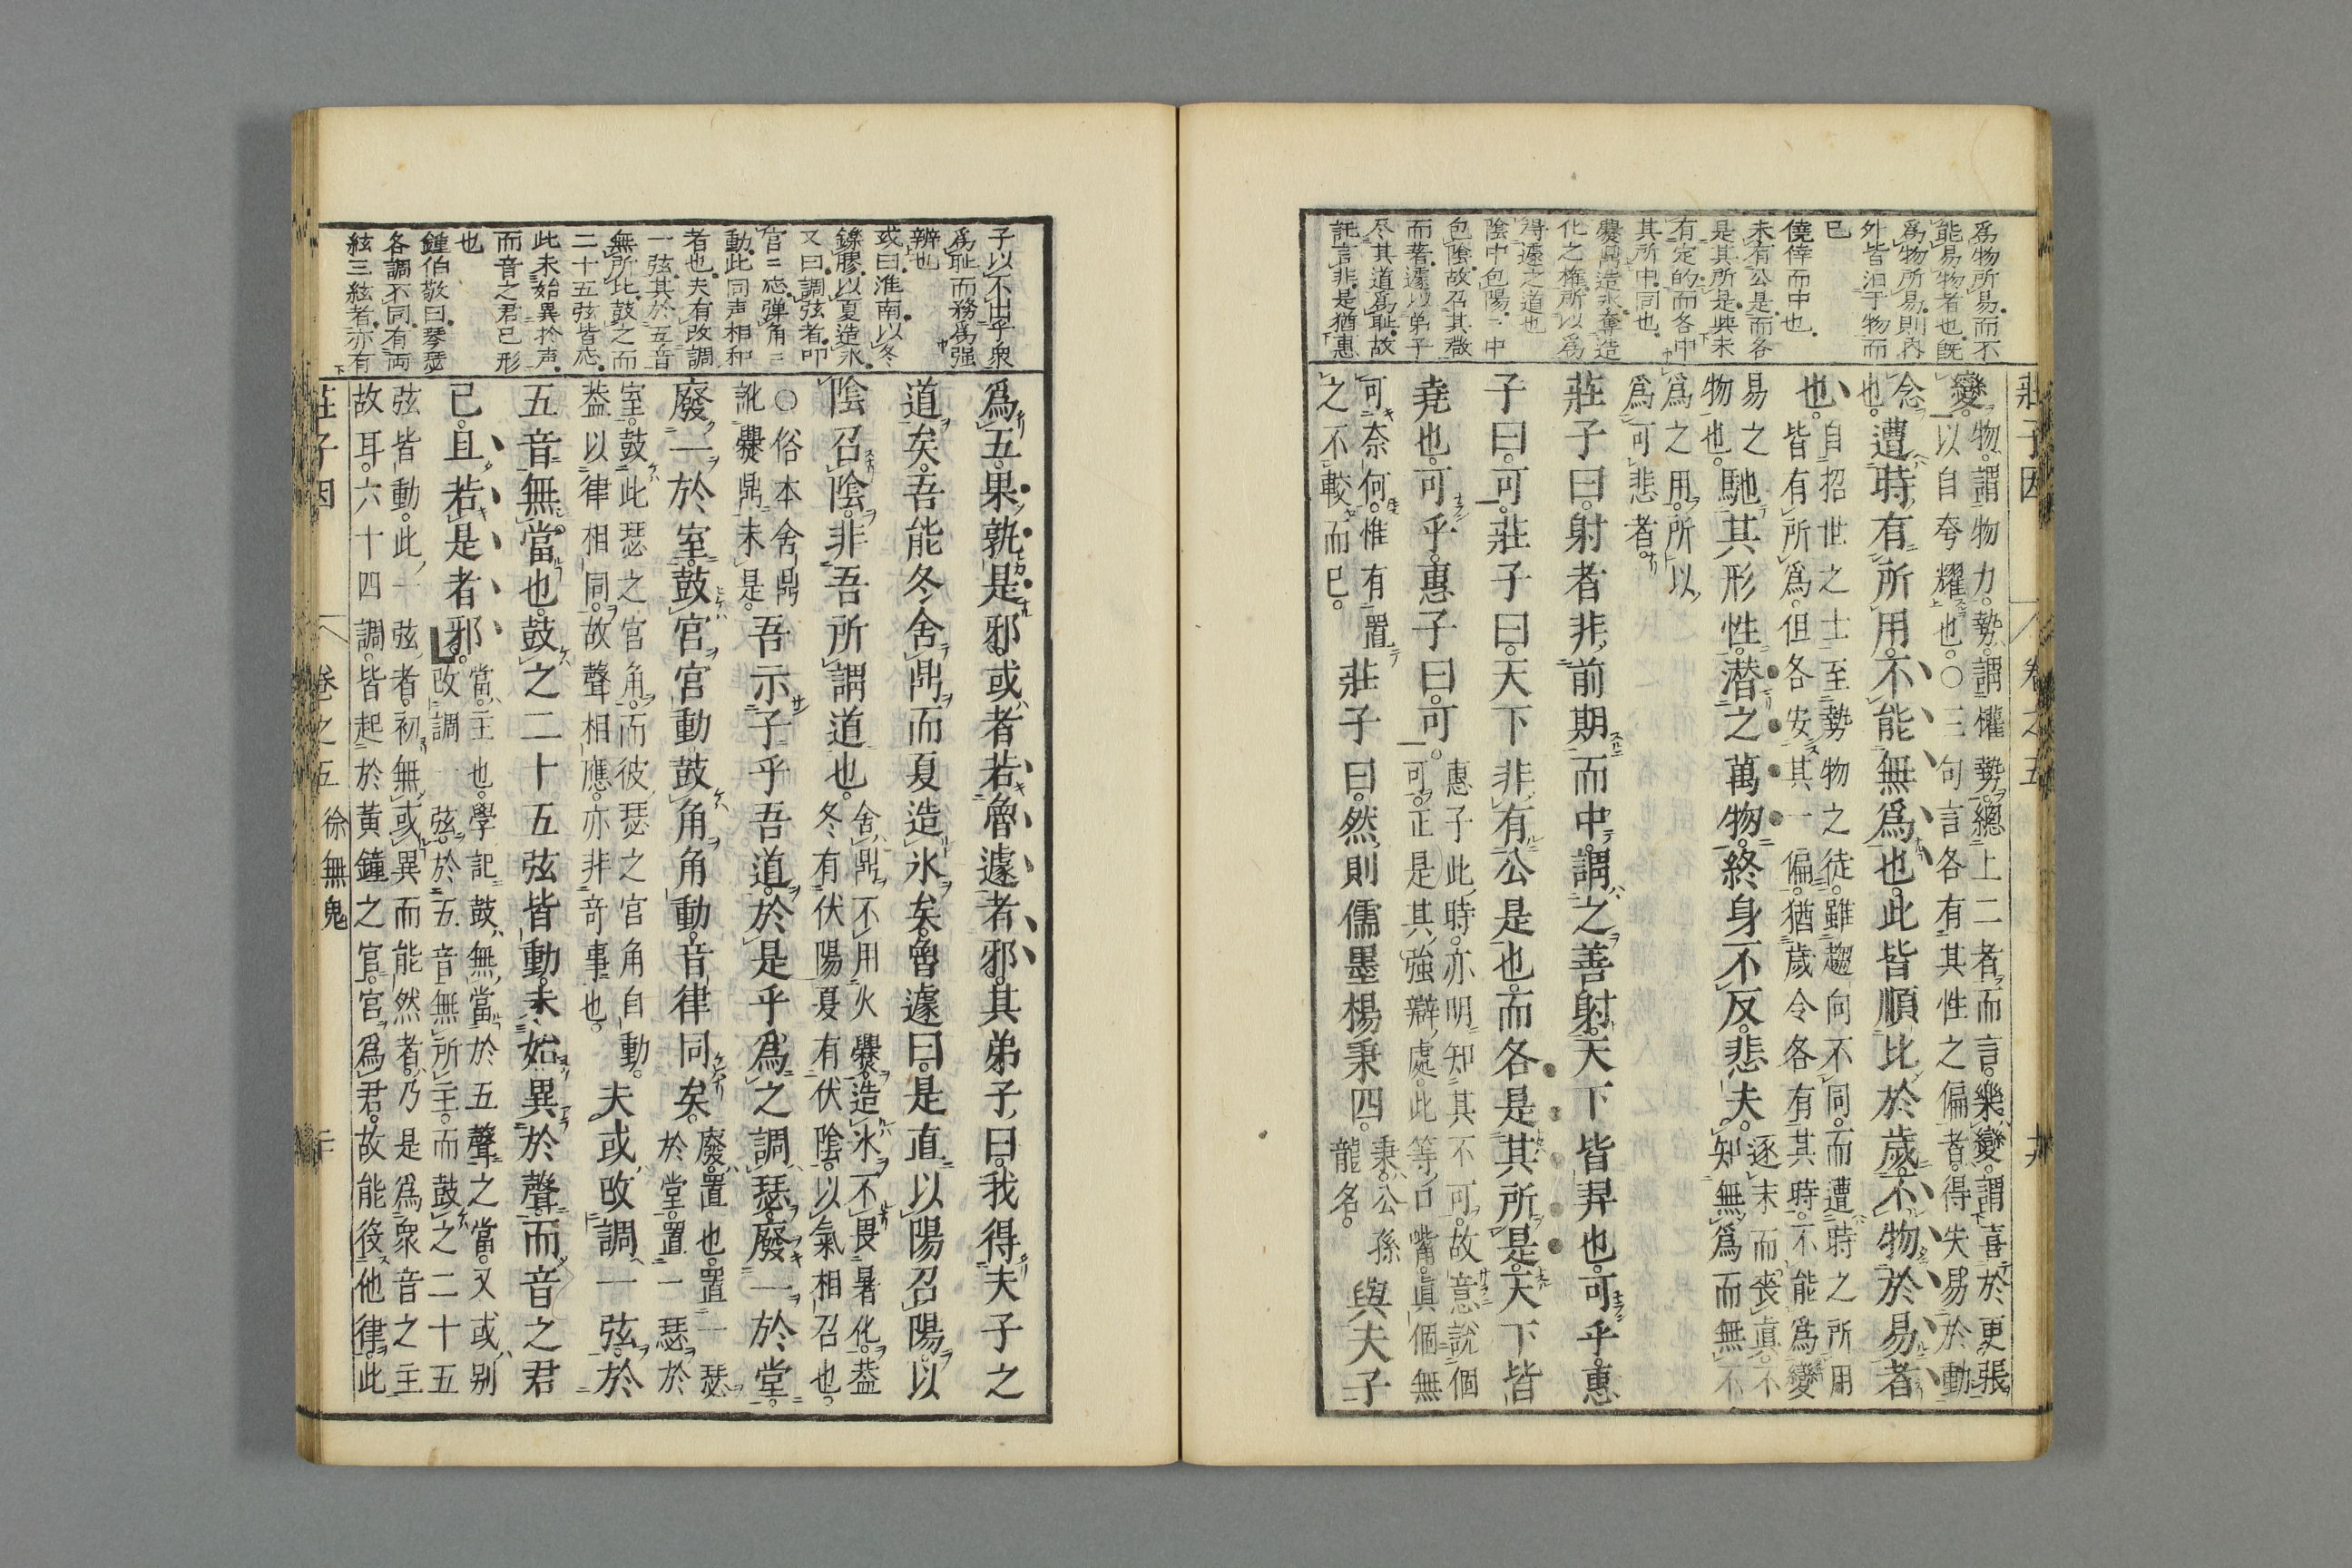 莊子因　卷之五　十九
爲物所易而不
能易物者也既
爲物所易則内
外皆汩于物而
已
僥倖而中也
未有公是而各
是其所是與未
有定的而各中
其所中同也
爨鼎造氷奪造
化之權所以爲
得遽之道也
陰中包陽二中
包陰故召其
而著遽以弟子
尽其道爲耻故
託言非是猶惠
變物謂物力勢謂權勢總上二者而言樂變謂喜於更張
以自夸耀也○三句言各有其性之偏者得失易於動
念也遭時有所用不能無爲也此皆順比於歲不物於易者
也自招世之士至勢物之徒雖趨向不同而遭時之所用
皆有所爲但各安其一偏猶歲令各有其時不能爲變
易之
物也馳其形性潜之萬物終身不反悲夫逐末而喪眞不
知無爲而無不
爲之用所以
爲可悲者
莊子曰射者非前期而中謂之善射天下皆羿也可乎惠
子曰可莊子曰天下非有公是也而各是其所是天下皆
堯也可乎惠子曰可惠子此時亦明知其不可故意説個
可正是其強辯處此等口嘴眞個無
可奈何惟有置
之不較而已莊子曰然則儒墨楊秉四秉公孫
龍名與夫子
子以不出乎衆
爲耻而務爲强
辨也
或曰淮南以冬
鑠膠以夏造氷
又曰調弦者叩
宮宮應弾角角
動此同声相和
者也夫有改調
一弦其於五音
無所比鼓之而
二十五弦皆応
此未始異於声
而音之君已形
也
鍾伯敬曰琴瑟
各調不同有両
絃三絃者亦有
爲五果孰是邪或者若魯遽者邪其弟子曰我得夫子之
道矣吾能冬舍鼎而夏造氷矣魯遽曰是直以陽召陽以
陰召陰非吾所謂道也舍鼎不用火爨造氷不畏暑化蓋
冬有伏陽夏有伏陰以氣相召也
○俗本舍鼎
訛爨鼎未是吾示子乎吾道於是乎爲之調瑟廢一於堂
廢一於室鼓宮宮動鼓角角動音律同矣廢置也置一瑟
於堂置一瑟於
室鼓此瑟之宮角而彼瑟之宮角自動
蓋以律相同故聲相應亦非奇事也夫或改調一弦於
五音無當也鼓之二十五弦皆動未始異於聲而音之君
已且若是者邪當主也學記鼓無當於五聲之當又或別
改調一弦於五音無所主而鼓之二十五
弦皆動此一弦者初無或異而能然者乃是爲衆音之主
故耳六十四調皆起於黄鐘之宮宮爲君故能役他律此
莊子因　卷之五　徐無鬼　二十